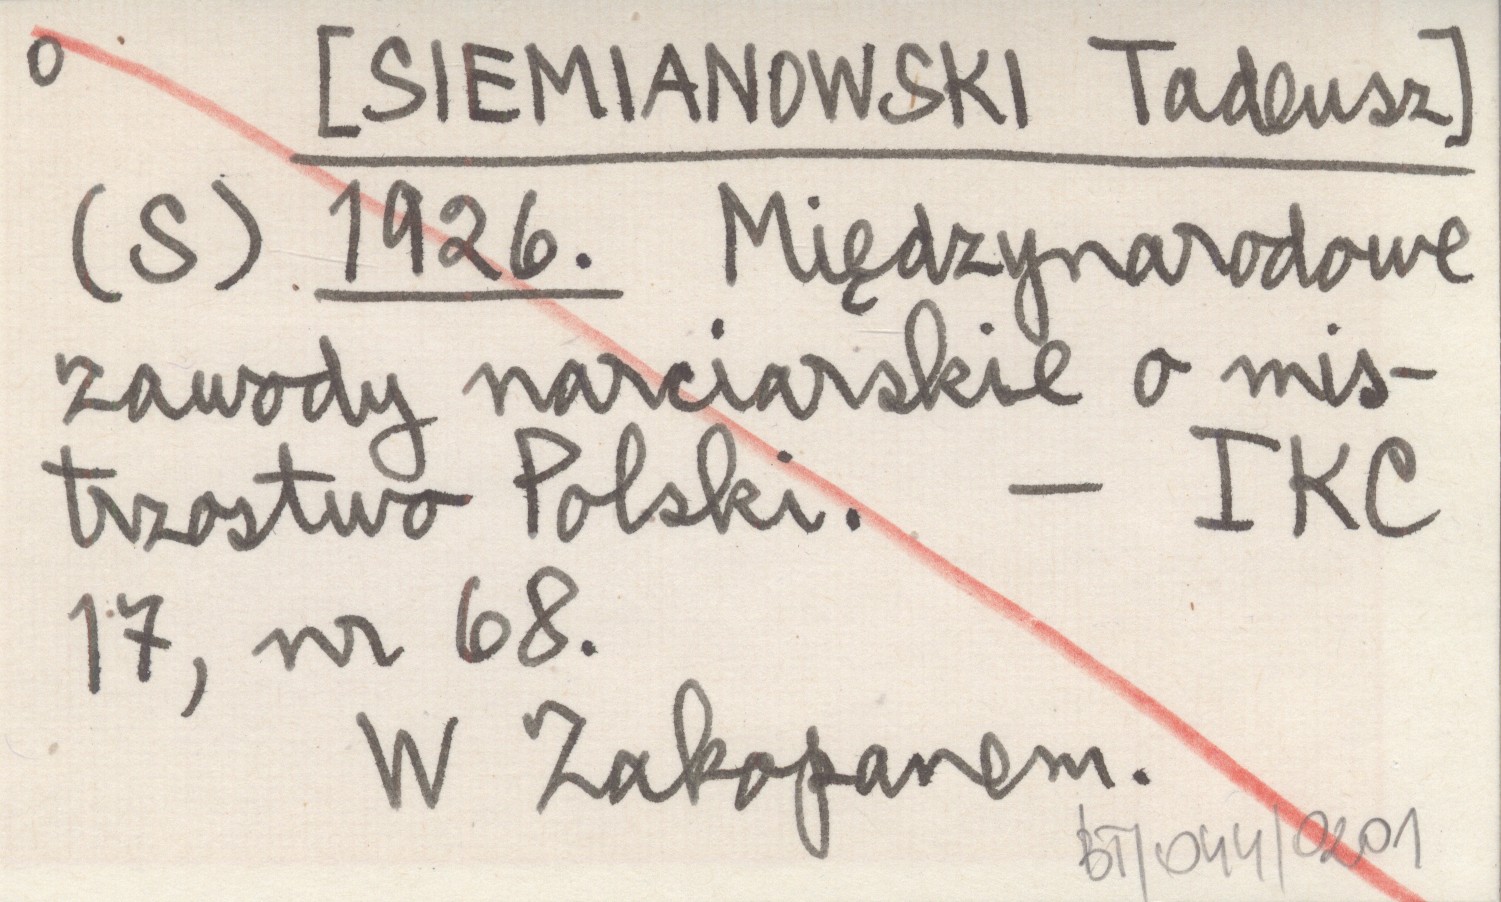 o [SIEMIANOWSKI Tadeusz]
(S) 1926. Międzynarodowe
zawody narciarskie o mis-
trzostwo Polski. — IKC
17, nr 68.
W Zakopanem.
BT/044/0201